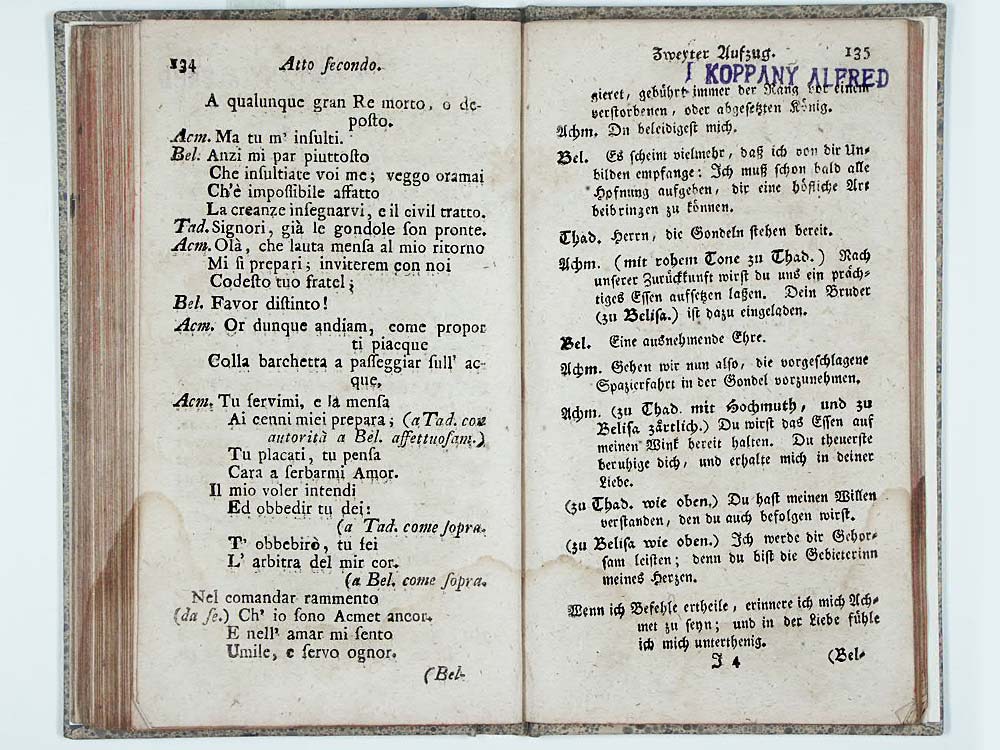 134 Atto ſecondo.
A qualunque gran Re morto, o de-
poſto.
Acm. Ma tu m' inſulti.
Bel. Anzi mi par piuttoſto
Che inſultiate voi me; veggo oramai
Ch'è impoſſibile affatto
La creanze inſegnarvi, e il civil tratto.
Tad. Signori, già le gondole ſon pronte.
Acm. Olà, che lauta menſa al mio ritorno
Mi ſi prepari; inviterem con noi
Codeſto tuo fratel;
Bel. Favor diſtinto!
Acm. Or dunque andiam, come propor
ti piacque
Colla barchetta a paſſeggiar ſull' ac-
que,
Acm. Tu ſervimi, e la menſa
Ai cenni miei prepara; (a Tad. con
autorità a Bel. affettuoſam.)
Tu placati, tu penſa
Cara a ſerbarmi Amor.
Il mio voler intendi
Ed obbedir tu dei:
(a Tad. come ſopra.
T' obbebirò, tu ſei
L' arbitra del mir cor.
(a Bel. come ſopra.
Nel comandar rammento
(da ſe.) Ch' io ſono Acmet ancor.
E nell' amar mi ſento
Umile, e ſervo ognor.
(Bel-
Zweyter Aufzug. 135
I KOPPANY ALFRED
gieret, gebührt immer der Rang vor einem
verſtorbenen, oder abgeſetzten König.
Achm. Du beleidigeſt mich.
Bel. Es ſcheint vielmehr, daß ich von dir Un-
bilden empfange: Ich muß ſchon bald alle
Hofnung aufgeben, dir eine höfliche Art
beibringen zu können.
Thad. Herrn, die Gondeln ſtehen bereit.
Achm. (mit rohem Tone zu Thad.) Nach
unſerer Zurückkunft wirſt du uns ein präch-
tiges Eſſen aufſetzen laßen. Dein Bruder
(zu Beliſa.) iſt dazu eingeladen.
Bel. Eine ausnehmende Ehre.
Achm. Gehen wir nun alſo, die vorgeſchlagene
Spazierfahrt in der Gondel vorzunehmen.
Achm. (zu Thad. mit Hochmuth, und zu
Beliſa zärtlich.) Du wirſt das Eſſen auf
meinen Wink bereit halten. Du theuerſte
beruhige dich, und erhalte mich in deiner
Liebe.
(zu Thad. wie oben.) Du haſt meinen Willen
verſtanden, den du auch befolgen wirſt.
(zu Beliſa wie oben.) Ich werde dir Gehor-
ſam leiſten; denn du biſt die Gebieterinn
meines Herzen.
Wenn ich Befehle ertheile, erinnere ich mich Ach-
met zu ſeyn; und in der Liebe fühle
ich mich unterthenig.
J 4 (Bel-